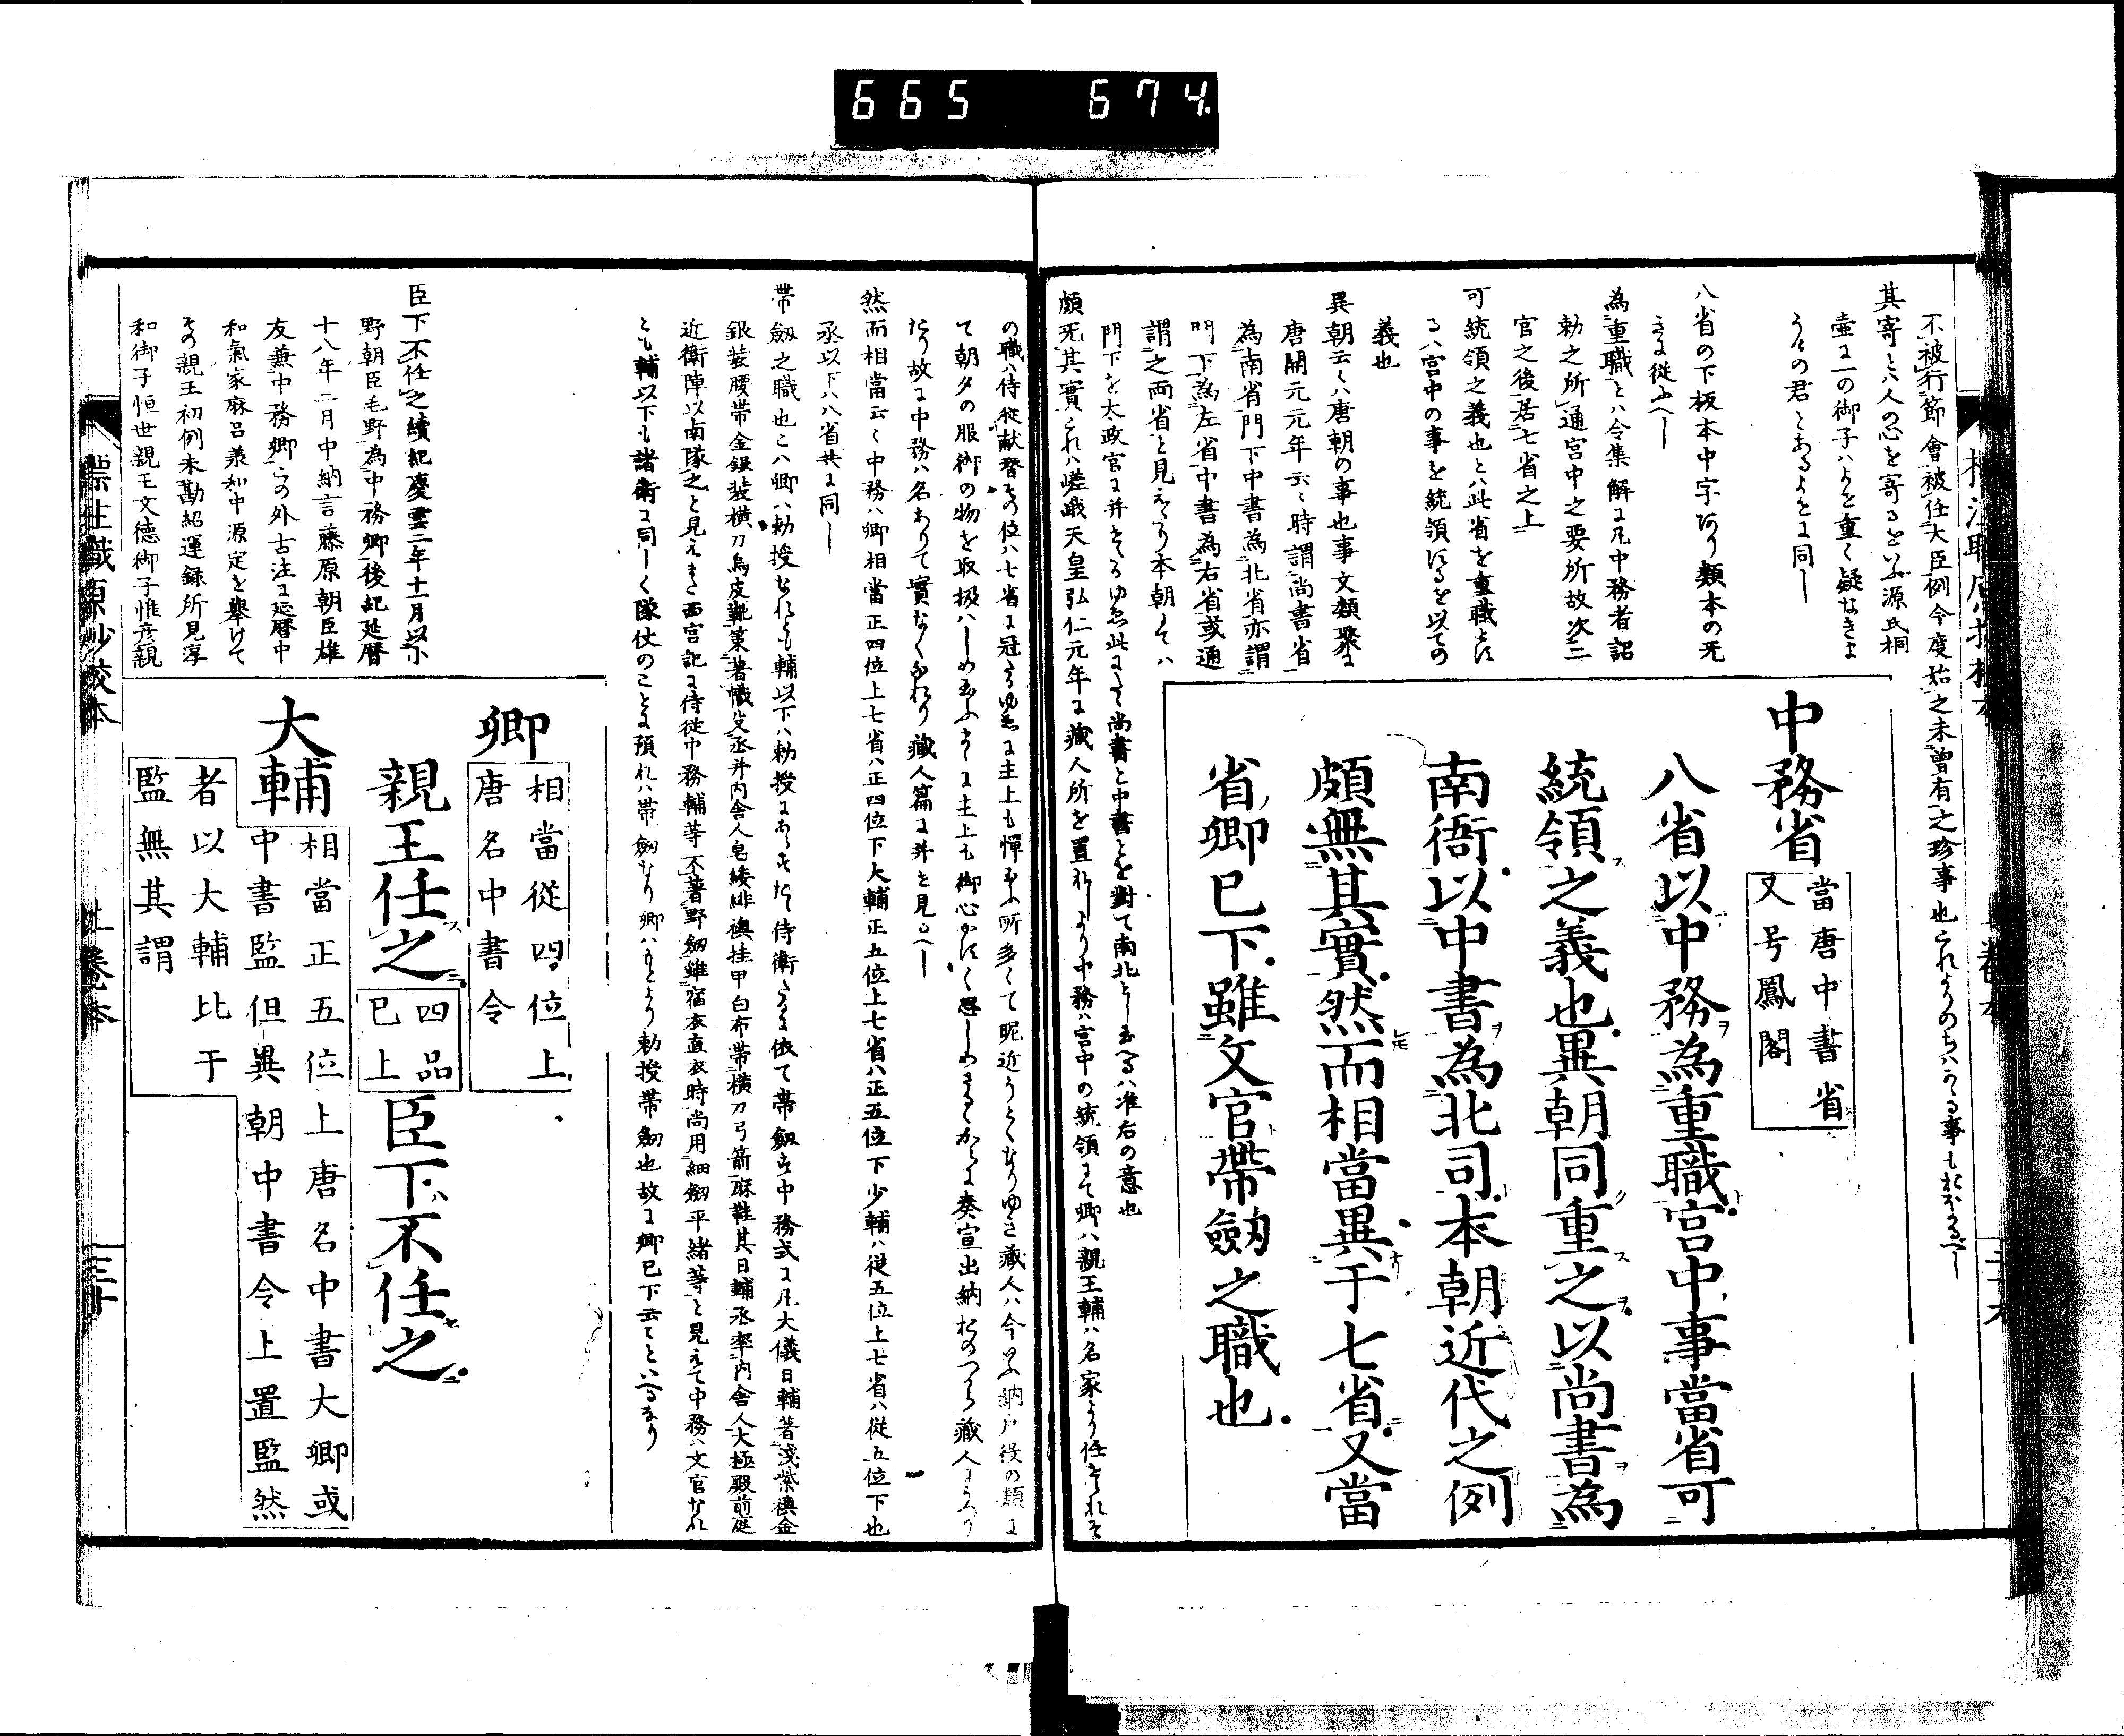 665 674
不被行節會被任大臣例今度始之未曾有之珍事也
其寄と八人の心を寄るをいふ源氏桐
壷に一の御子ハよせ重く疑なきま
うけの君とあるよせに同し
八省の下板本中字あり類本の无
きに従ふへし
為重職とハ令集解に凡中務者詔
勅之所通宮中之要所故次二
官之後居七省之上
可統領之義也とハ此省を重職とす
るハ宮中の事を統領するを以ての
義也
異朝云〻ハ唐朝の事也事文類聚に
唐開元元年云〻時謂尚書省
為南省門下中書為北省亦謂
門下為左省中書為右省或通
謂之両省と見えたり本朝にてハ
門下を太政官に并するゆゑ此にも尚書と中書とを對て南北とし玉へるハ准右の意也
頗无其實これハ嵯峨天皇弘仁元年に藏人所を置れしより中務ハ宮中の統領にて卿ハ親王輔ハ名家より任すれそ
中務省
當唐中書省
又号鳳閣
八省以中務為重職宮中事當省可
統領之義也異朝同重之以尚書為
南衙以中書為北司本朝近代之例
頗無其實然而相當異于七省又當
省卿已下雖文官帶劔之職也
の職ハ侍従献替その位ハ七省に冠たるゆゑに主上も憚玉ふ所多くて昵近うとくなりゆき藏人ハ今いふ納戸役の類に
て朝夕の服御の物を取扱ハしめ玉ふ
たり故に中務ハ名ありて實なくなれり藏人篇に并せ見るへし
然而相當云〻中務ハ卿相當正四位上七省ハ正四位下大輔正五位上七省ハ正五位下少輔ハ従五位上七省ハ従五位下也
丞以下ハ八省共に同し
帶劔之職也とハ卿ハ勅授なれとも輔以下ハ勅授にあらすたゝ侍衛たるに依て帶劔す中務式に凡大儀日輔著淺紫襖金
銀装腰帶金銀装横刀烏皮靴策著幟殳丞并内舎人皂緌緋襖挂甲白布帶横刀弓箭麻鞋其日輔丞率内舎人大極殿前庭
近衛陣以南隊之と見えまた西宮記に侍従中務輔等不著野劔雖宿衣直衣時尚用細劔平緒等と見えて中務ハ文官なれ
とも輔以下も諸衛に同しく隊仗のことに預れハ帶劔なり卿ハもとより勅授帶劔也故に卿已下云〻といへるなり
卿
相當從四位上
唐名中書令
親王任之
四品
已上
臣下不任之
大輔
相當正五位上唐名中書大卿或
中書監但異朝中書令上置監然
者以大輔比于
監無其謂
臣下不任之續紀慶雲二年十一月以小
野朝臣毛野為中務卿後記延暦
十八年二月中納言藤原朝臣雄
友兼中務卿この外古注に延暦中
和氣家麻呂義和中源定を擧けて
その親王初例未勘紹運録所見淳
和御子恒世親王文德御子惟彦親
標注職原抄校本 上巻本 三十